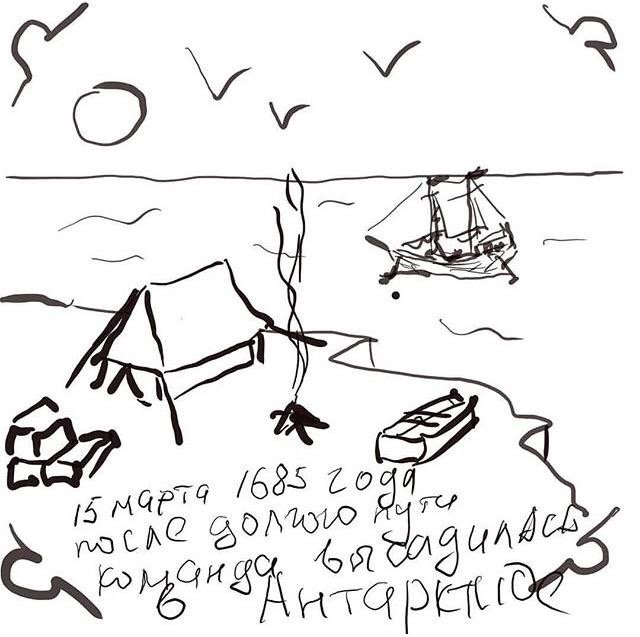 15 марта 1685 года
после долгого пути
команда высадилась
в Антарктиде